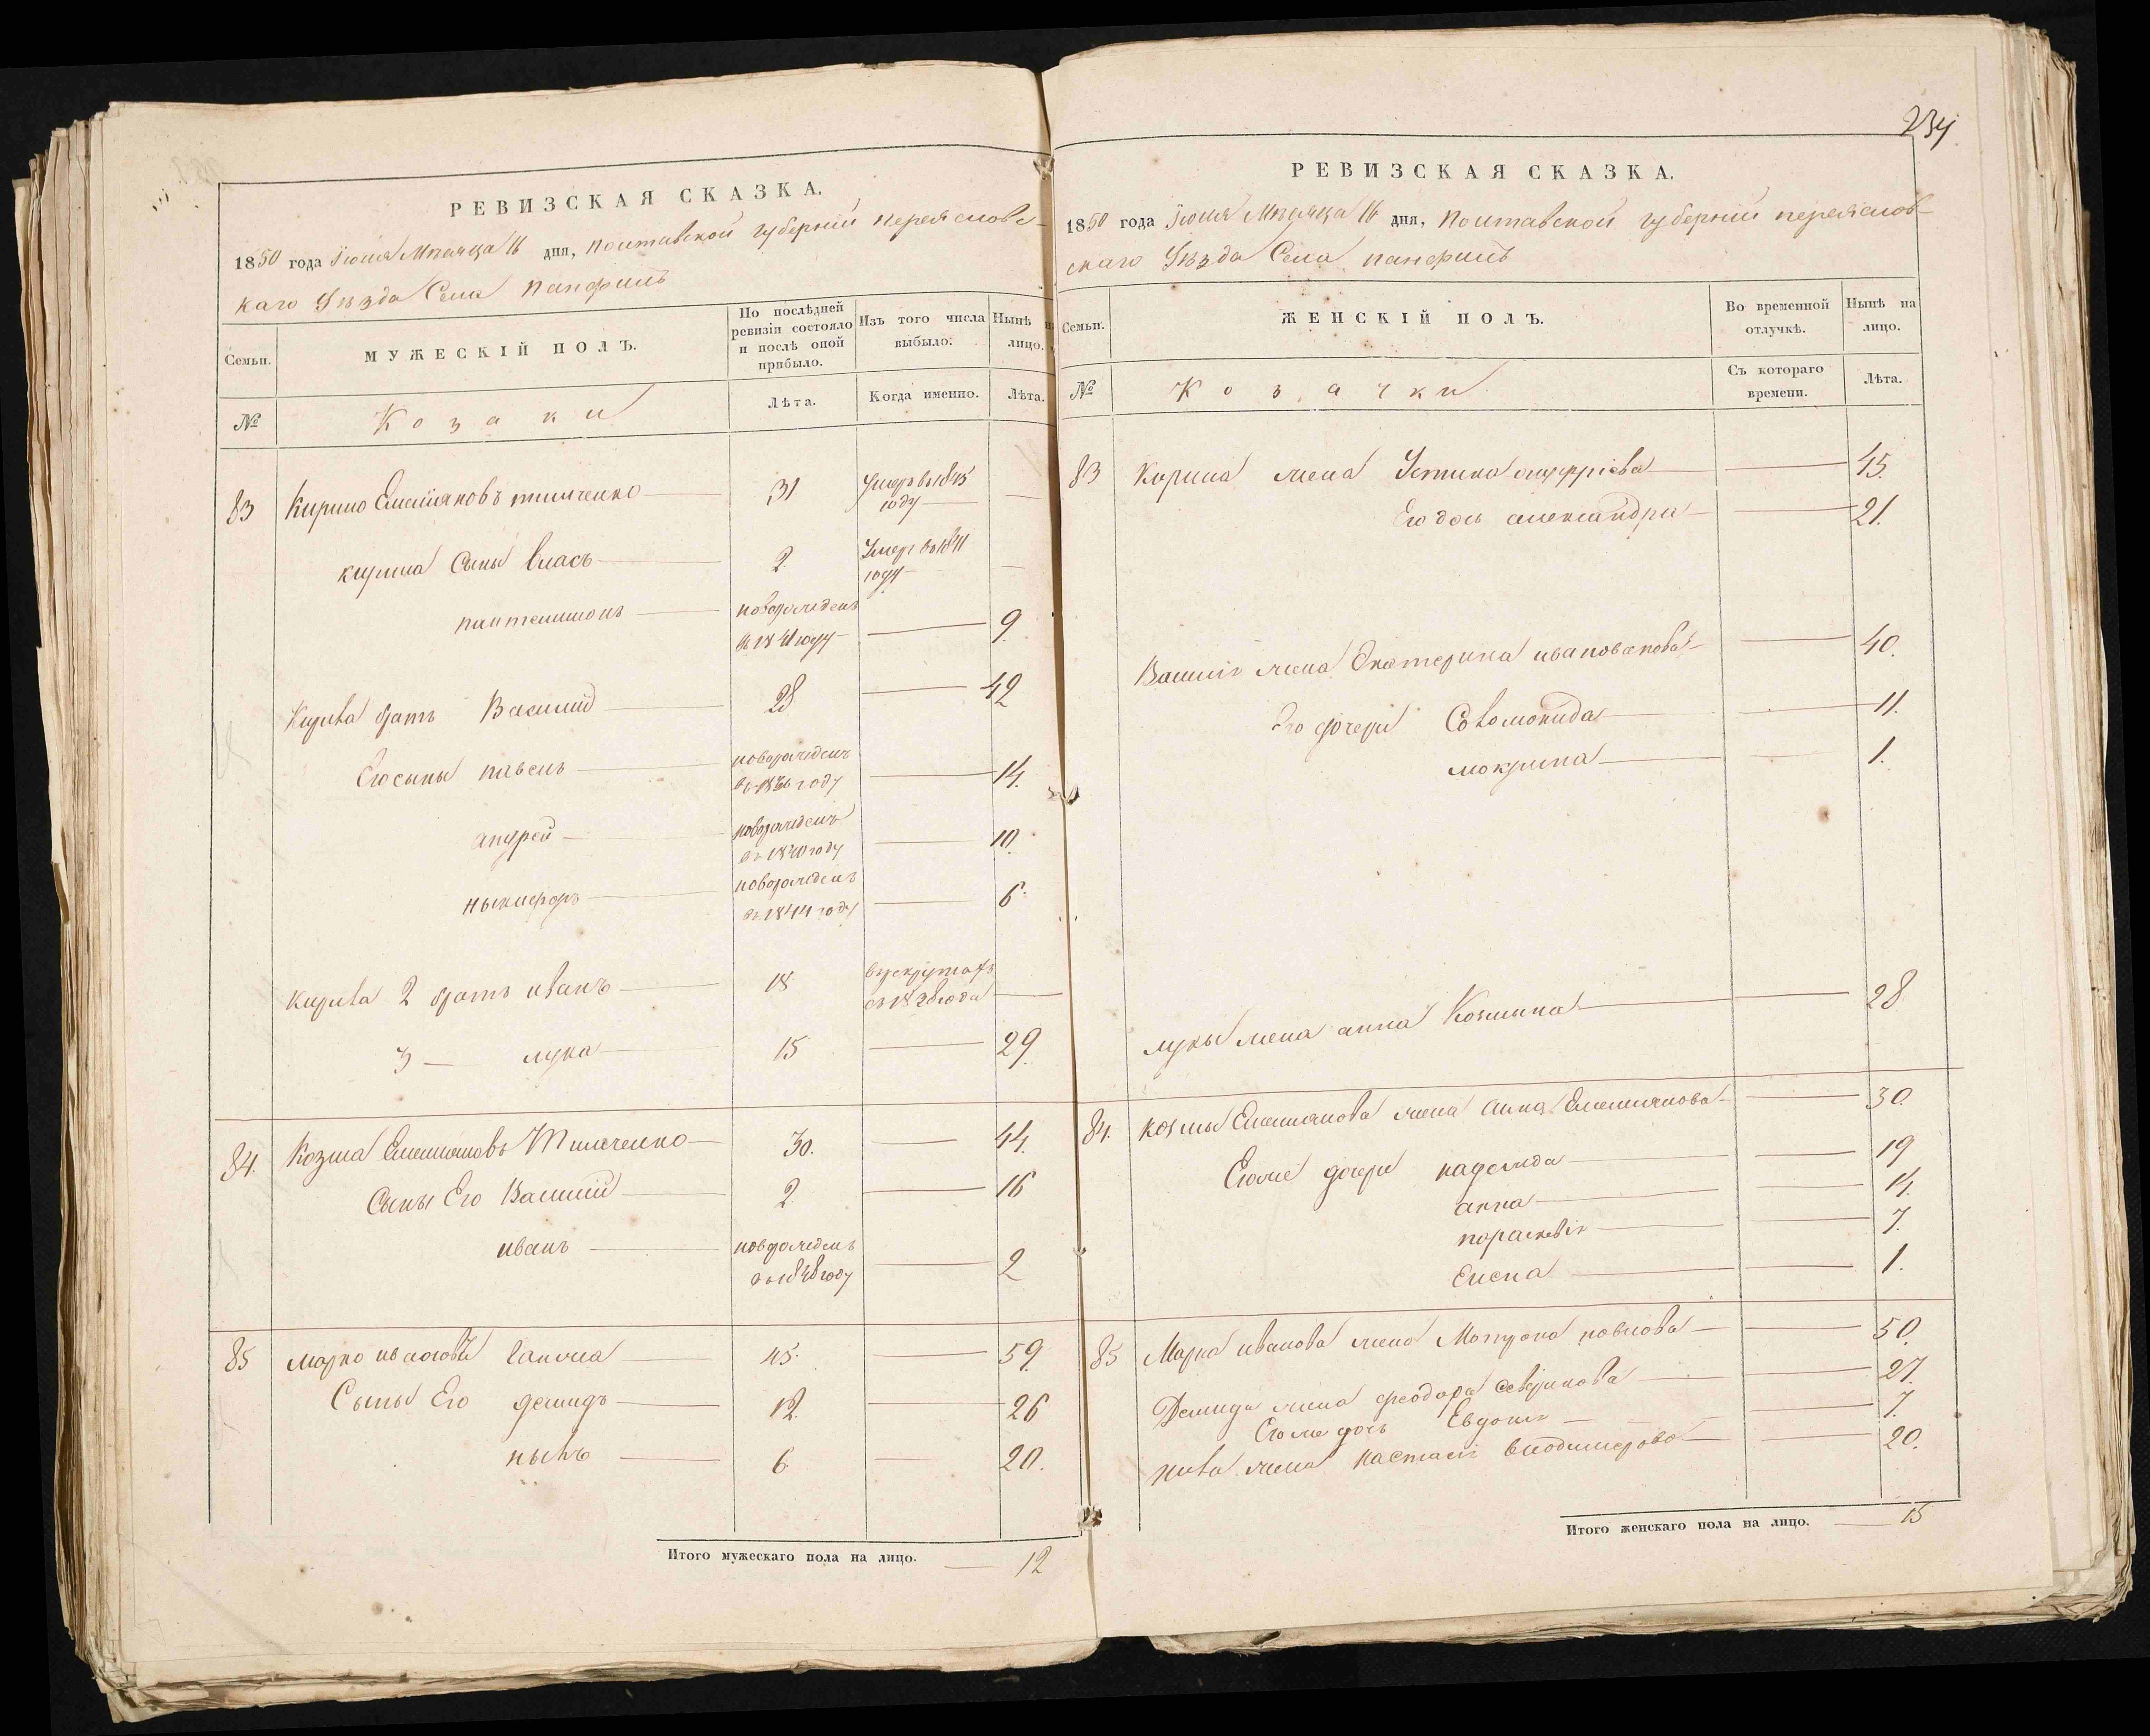 234
РЕВИЗСКАЯ СКАЗКА.
1850 года Іюля Мѣсяца 16 дня, Полтавской губерніи переясловс-
каго Уѣзда Села панфилъ
Семьи.
МУЖЕСКІЙ ПОЛЪ.
По послѣдней ревизіи состояло и послѣ оной прибыло.
Изъ того числа выбыло.
Нынѣ на лицо.
№
Козаки
Лѣта.
Когда именно.
Лѣта.
83 Кирило Емеліяновъ тимченко 31 Умеръ въ 1845 году
кирила Сыны власъ 2. Умеръ въ 1841 году
пантелимонъ новорожденъ въ 1841 году 9
Кирила братъ Василій 28 42
Его сыны павелъ новорожденъ въ 1836 году 14.
андрей новорожденъ въ 1840 году 10.
ныкифоръ новорожденъ въ 1844 году 6.
Кирила 2 братъ иванъ 18 в рекрутахъ съ 1838 года
3 — лука 15 29.
84. Козма Емелияновъ Тимченко 30. 44.
Сыны Его Василій 2. 16
иванъ новорожденъ въ 1848 году 2
85 марко ивановъ Ганжа 45. 59.
Сыны Его демидъ 12. 26
ныкъ 6. 20.
Итого мужескаго пола на лицо. 12
РЕВИЗСКАЯ СКАЗКА.
1850 года Іюля Мѣсяца 16 дня, Полтавской губерніи переяслов-
скаго Уѣзда Села панфилъ
Семьи.
ЖЕНСКІЙ ПОЛЪ.
Во временной отлучкѣ.
Нынѣ на лицо.
№
Козачки
Съ котораго времени.
Лѣта.
83 Кирила жена Устина онуфріева 45.
Его дочь александра 21.
Василія жена Екатерина ивановна 40.
Его дочери Соломонида 11.
мокрина 1.
луки жена анна Козмина 28
84. козмы Емелиянова жена анна Емелиянова 30.
Его же дочери надежда 19
анна 14.
порасковія 7.
Елена 1.
85 Марка иванова жена Мотрона павлова 50.
Демида жена феодора северинова 27.
Его же дочь Евдокія 7.
жена настасія влодимерова 20.
Итого женскаго пола на лицо. 15